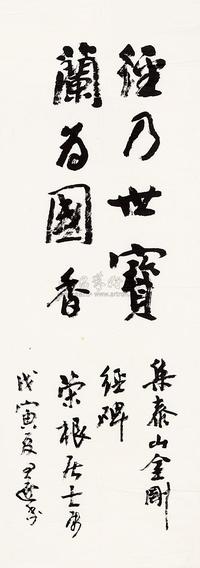 經乃世寶
蘭為國香
集泰山金剛
經碑
榮根居士屬
戊寅夏